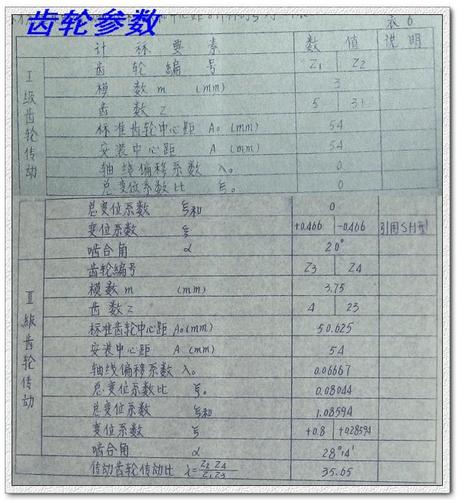 齿轮参数
表 6
计 称 要 素 数 值 说 明
I级齿轮传动
齿 轮 编 号 Z₁ Z₂
模 数 m (mm) 3
齿 数 Z 5 31
标准齿轮中心距 A₀ (mm) 54
安装中心距 A (mm) 54
轴线偏移系数 λ₀ 0
总变位系数比 ξ₀ 0
总变位系数 ξ和 0
变位系数 ξ +0.466 -0.466 引用SH型
啮合角 α 20°
II级齿轮传动
齿轮编号 Z3 Z4
模数 m (mm) 3.75
齿 数 Z 4 23
标准齿轮中心距 A₀(mm) 50.625
安装中心距 A (mm) 54
轴线偏移系数 λ₀ 0.06667
总变位系数比 ξ₀ 0.08044
总变位系数 ξ和 1.08594
变位系数 ξ +0.8 +0.28594
啮合角 α 28°14′
传动齿轮传动比 i=Z₂ Z₄/Z₁ Z₃ 35.65